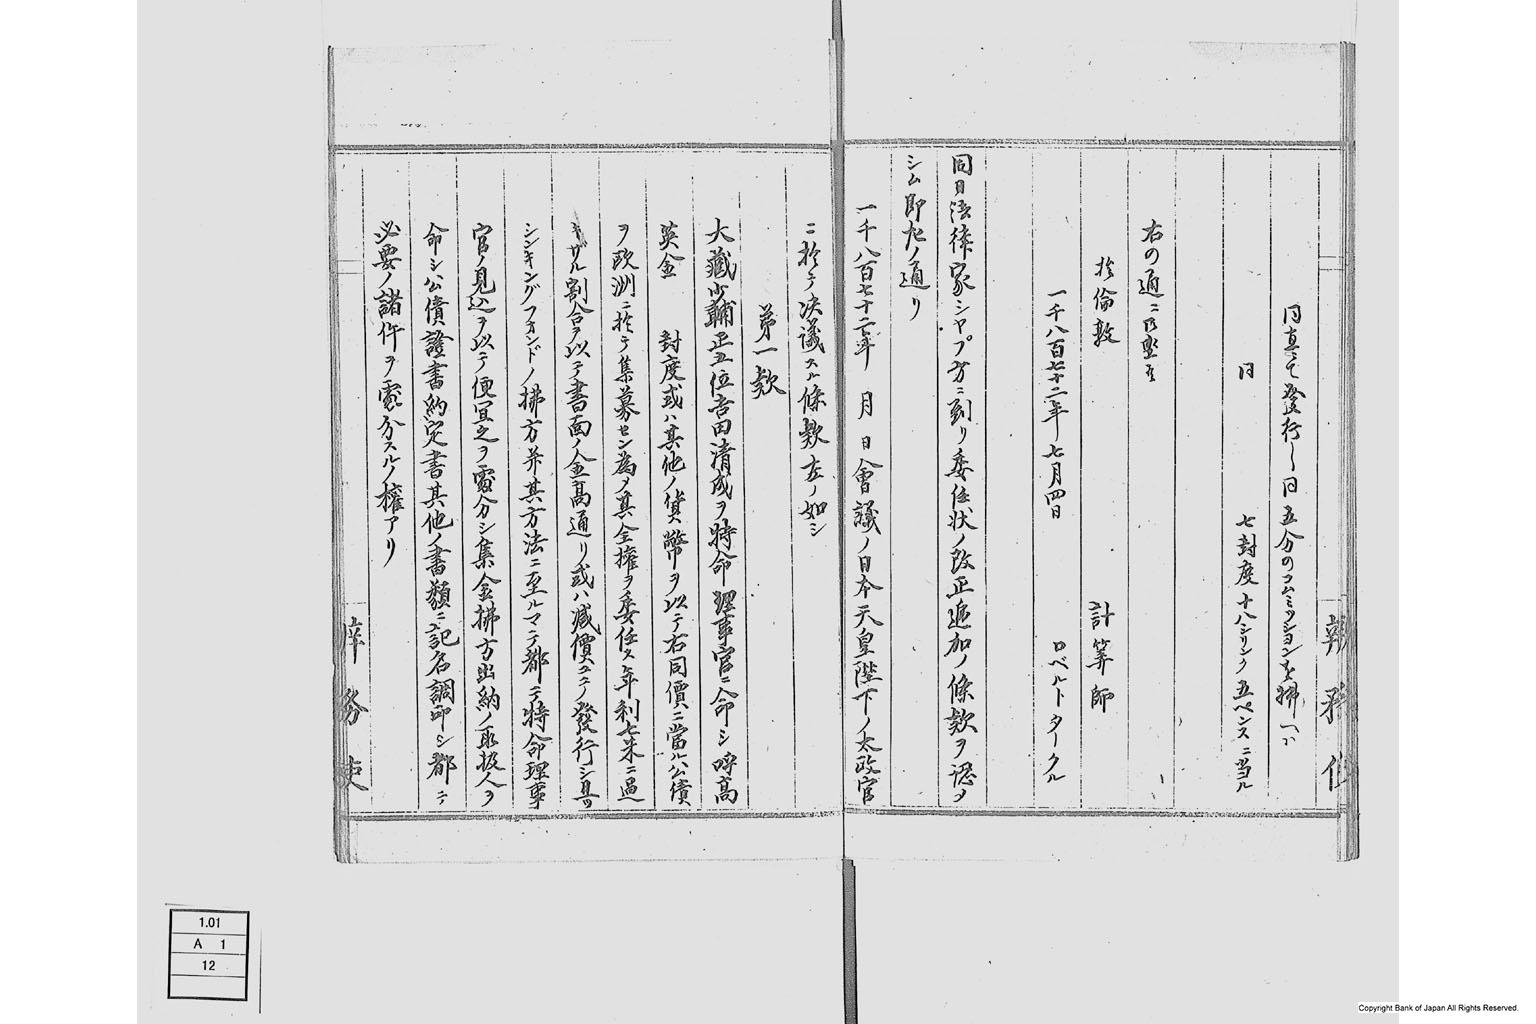 同直ニて発行し同五分のコムミッションを拂へハ
同　七封度十八シリング五ペンスニ当ル
右の通ニ
於倫敦　計算師
一千八百七十二年七月四日　ロベルトタークル
同日法律家シヤプ方ニ到リ委任状ノ改正追加ノ條款ヲ認メ
シム即左ノ通リ
一千八百七十二年　月　日會議ノ日本天皇陛下ノ太政官
ニ於テ决議スル條款左ノ如シ
第一款
大藏少輔正五位吉田清成ヲ特命理事官ニ命シ呼高
英金　封度或ハ其他ノ貨幣ヲ以テ右同價ニ當ル公債
ヲ欧洲ニ於テ集募セン為メ其全權ヲ委任ス年利七朱ニ過
キザル割合ヲ以テ書面ノ金高通リ或ハ减價ニテノ發行シ且ツ
シンキングフオンドノ拂方并其方法ニ至ルマテ都テ特命理事
官ノ見込ヲ以テ便宜之ヲ處分シ集金拂方出納ノ取扱人ヲ
命シ公債證書約定書其他ノ書類ニ記名調印シ都テ
必要ノ諸件ヲ處分スルノ權アリ
1.01
A 1
12
Copyright Bank of Japan All Rights Reserved.